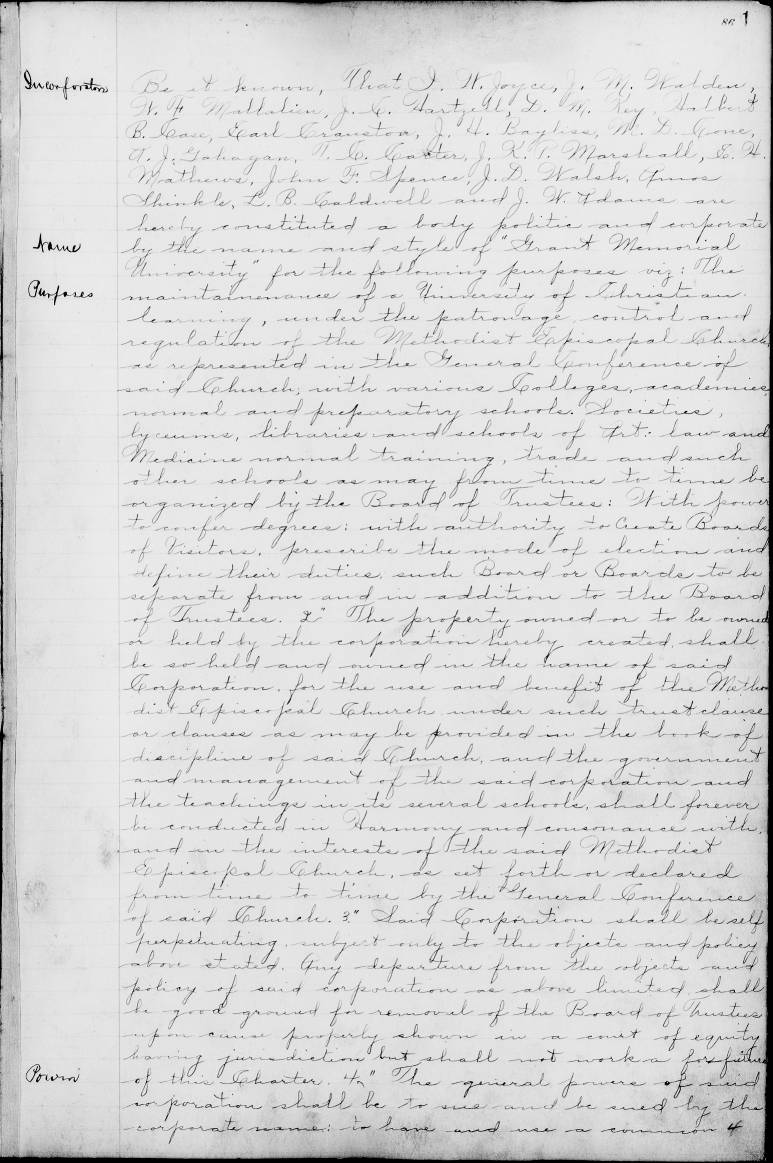 86 1
Incorporators
Be it known, That I. W. Joyce, J. M. Walden,
W. F. Mallalieu, J. C. Hartzell, D. M. Key, Halbert
B. Case, Earl Cranston, J. H. Bayliss, M. D. Cone,
A. J. Gahagan, T. C. Carter, J. K. P. Marshall, E. H.
Mathews, John F. Spence, J. D. Walsh, Amos
Shinkle, L. B. Caldwell and J. W. Adams are
hereby constituted a body politic and corporate
Name
by the name and style of "Grant Memorial
University" for the following purposes viz: The
Purposes
maintainenance of a University of Christian
learning, under the patronage, control and
regulation of the Methodist Episcopal Church,
as represented in the General Conference of
said Church, with various Colleges, academies,
normal and preparatory schools. Societies,
lyceums, libraries and schools of Art: law and
Medicine normal training, trade and such
other schools as may from time to time be
organized by the Board of Trustees: With power
to confer degrees: with authority to Create Boards
of Visitors, prescribe the mode of election and
define their duties, such Board or Boards to be
separate from and in addition to the Board
of Trustees. 2" The property owned or to be owned
or held by the corporation hereby created, shall
be so held and owned in the name of said
Corporation, for the use and benefit of the Metho
dist Episcopal Church under such trust clause
or clauses as may be provided in the book of
discipline of said Church, and the government
and management of the said corporation and
the teachings in its several schools, shall forever
be conducted in Harmony and consonance with,
and in the interests of the said Methodist
Episcopal Church, as set forth or declared
from time to time by the General Conference
of said Church. 3" Said Corporition shall be self
perpetuating, subject only to the objects and policy
above stated. Any departure from the objects and
policy of said corporation as above limited, shall
be good ground for removal of the Board of Trustees
upon cause properly shown in a court of equity
having jurisdiction but shall not work a forfeiture
Power
of this Charter. 4" The general powers of said
corporation shall be to sue and be sued by the
corporate name: to have and use a common 4